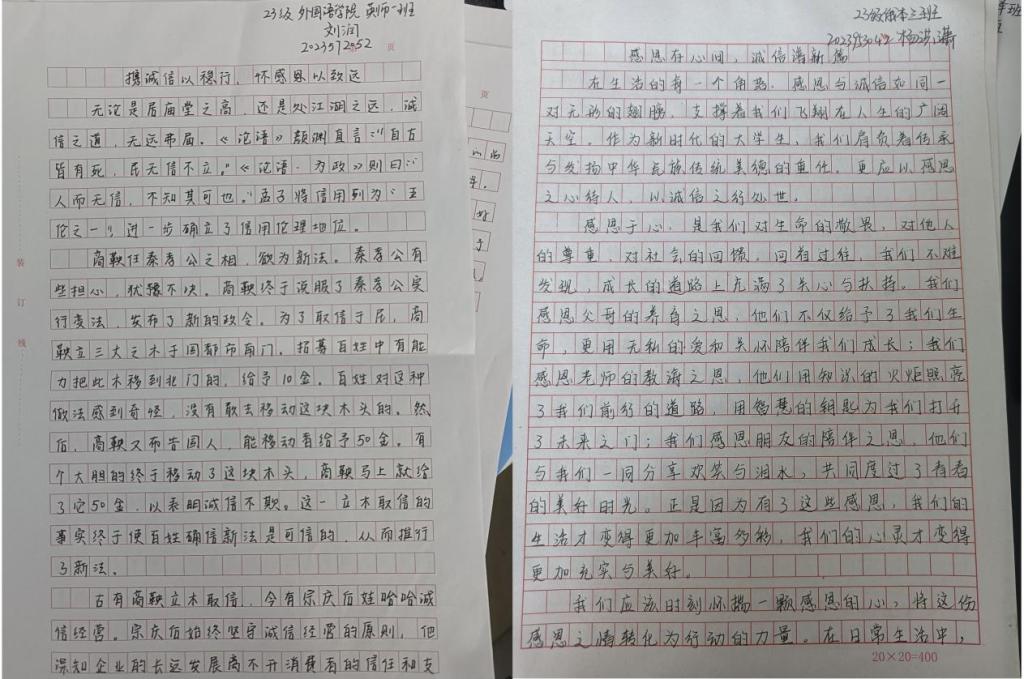 23级 外国语学院 英师一班
刘润
2023572052
页
携诚信以稳行，怀感恩以致远
无论是居庙堂之高，还是处江湖之远，诚
信之道，无远弗届。《论语》颜渊直言："自古
皆有死，民无信不立。"《论语·为政》则曰：
人而无信，不知其可也。"孟子将信用列为"五
伦之一"，进一步确立了信用伦理地位。
商鞅任秦孝公之相，欲为新法。秦孝公有
些担心，犹豫不决。商鞅终于说服了秦孝公实
行变法，发布了新的政令。为了取信于民，商
鞅立三丈之木于国都市南门，招募百姓中有能
力把此木移到北门的，给予10金。百姓对这种
做法感到奇怪，没有敢去移动这块木头的。然
后，商鞅又布告国人，能移动者给予50金。有
个大胆的终于移动了这块木头，商鞅马上就给
了它50金，以表明诚信不欺。这一立木取信的
事实终于使百姓确信新法是可信的，从而推行
了新法。
古有商鞅立木取信，今有宗庆后娃哈哈诚
信经营。宗庆后始终坚守诚信经营的原则，他
深知企业的长远发展离不开消费者的信任和支
装
订
线
页
23级俄本三班
杨洪潇
感恩在心间，诚信谱新篇
在生活的每一个角落，感恩与诚信如同一
对无形的翅膀，支撑着我们飞翔在人生的广阔
天空。作为新时代的大学生，我们肩负着传承
与发扬中华民族传统美德的重任，更应以感恩
之心待人，以诚信之行处世。
感恩于心，是我们对生命的敬畏，对他人
的尊重，对社会的回馈。回首过往，我们不难
发现，成长的道路上充满了关心与扶持。我们
感恩父母的养育之恩，他们不仅给予了我们生
命，更用无私的爱和关怀陪伴我们成长；我们
感恩老师的教诲之恩，他们用知识的火炬照亮
了我们前行的道路，用智慧的钥匙为我们打开
了未来之门；我们感恩朋友的陪伴之恩，他们
与我们一同分享欢笑与泪水，共同度过了青春
的美好时光。正是因为有了这些感恩，我们的
生活才变得更加丰富多彩，我们的心灵才变得
更加充实与美好。
我们应该时刻怀揣一颗感恩的心，将这份
感恩之情转化为行动的力量。在日常生活中，
20×20=400